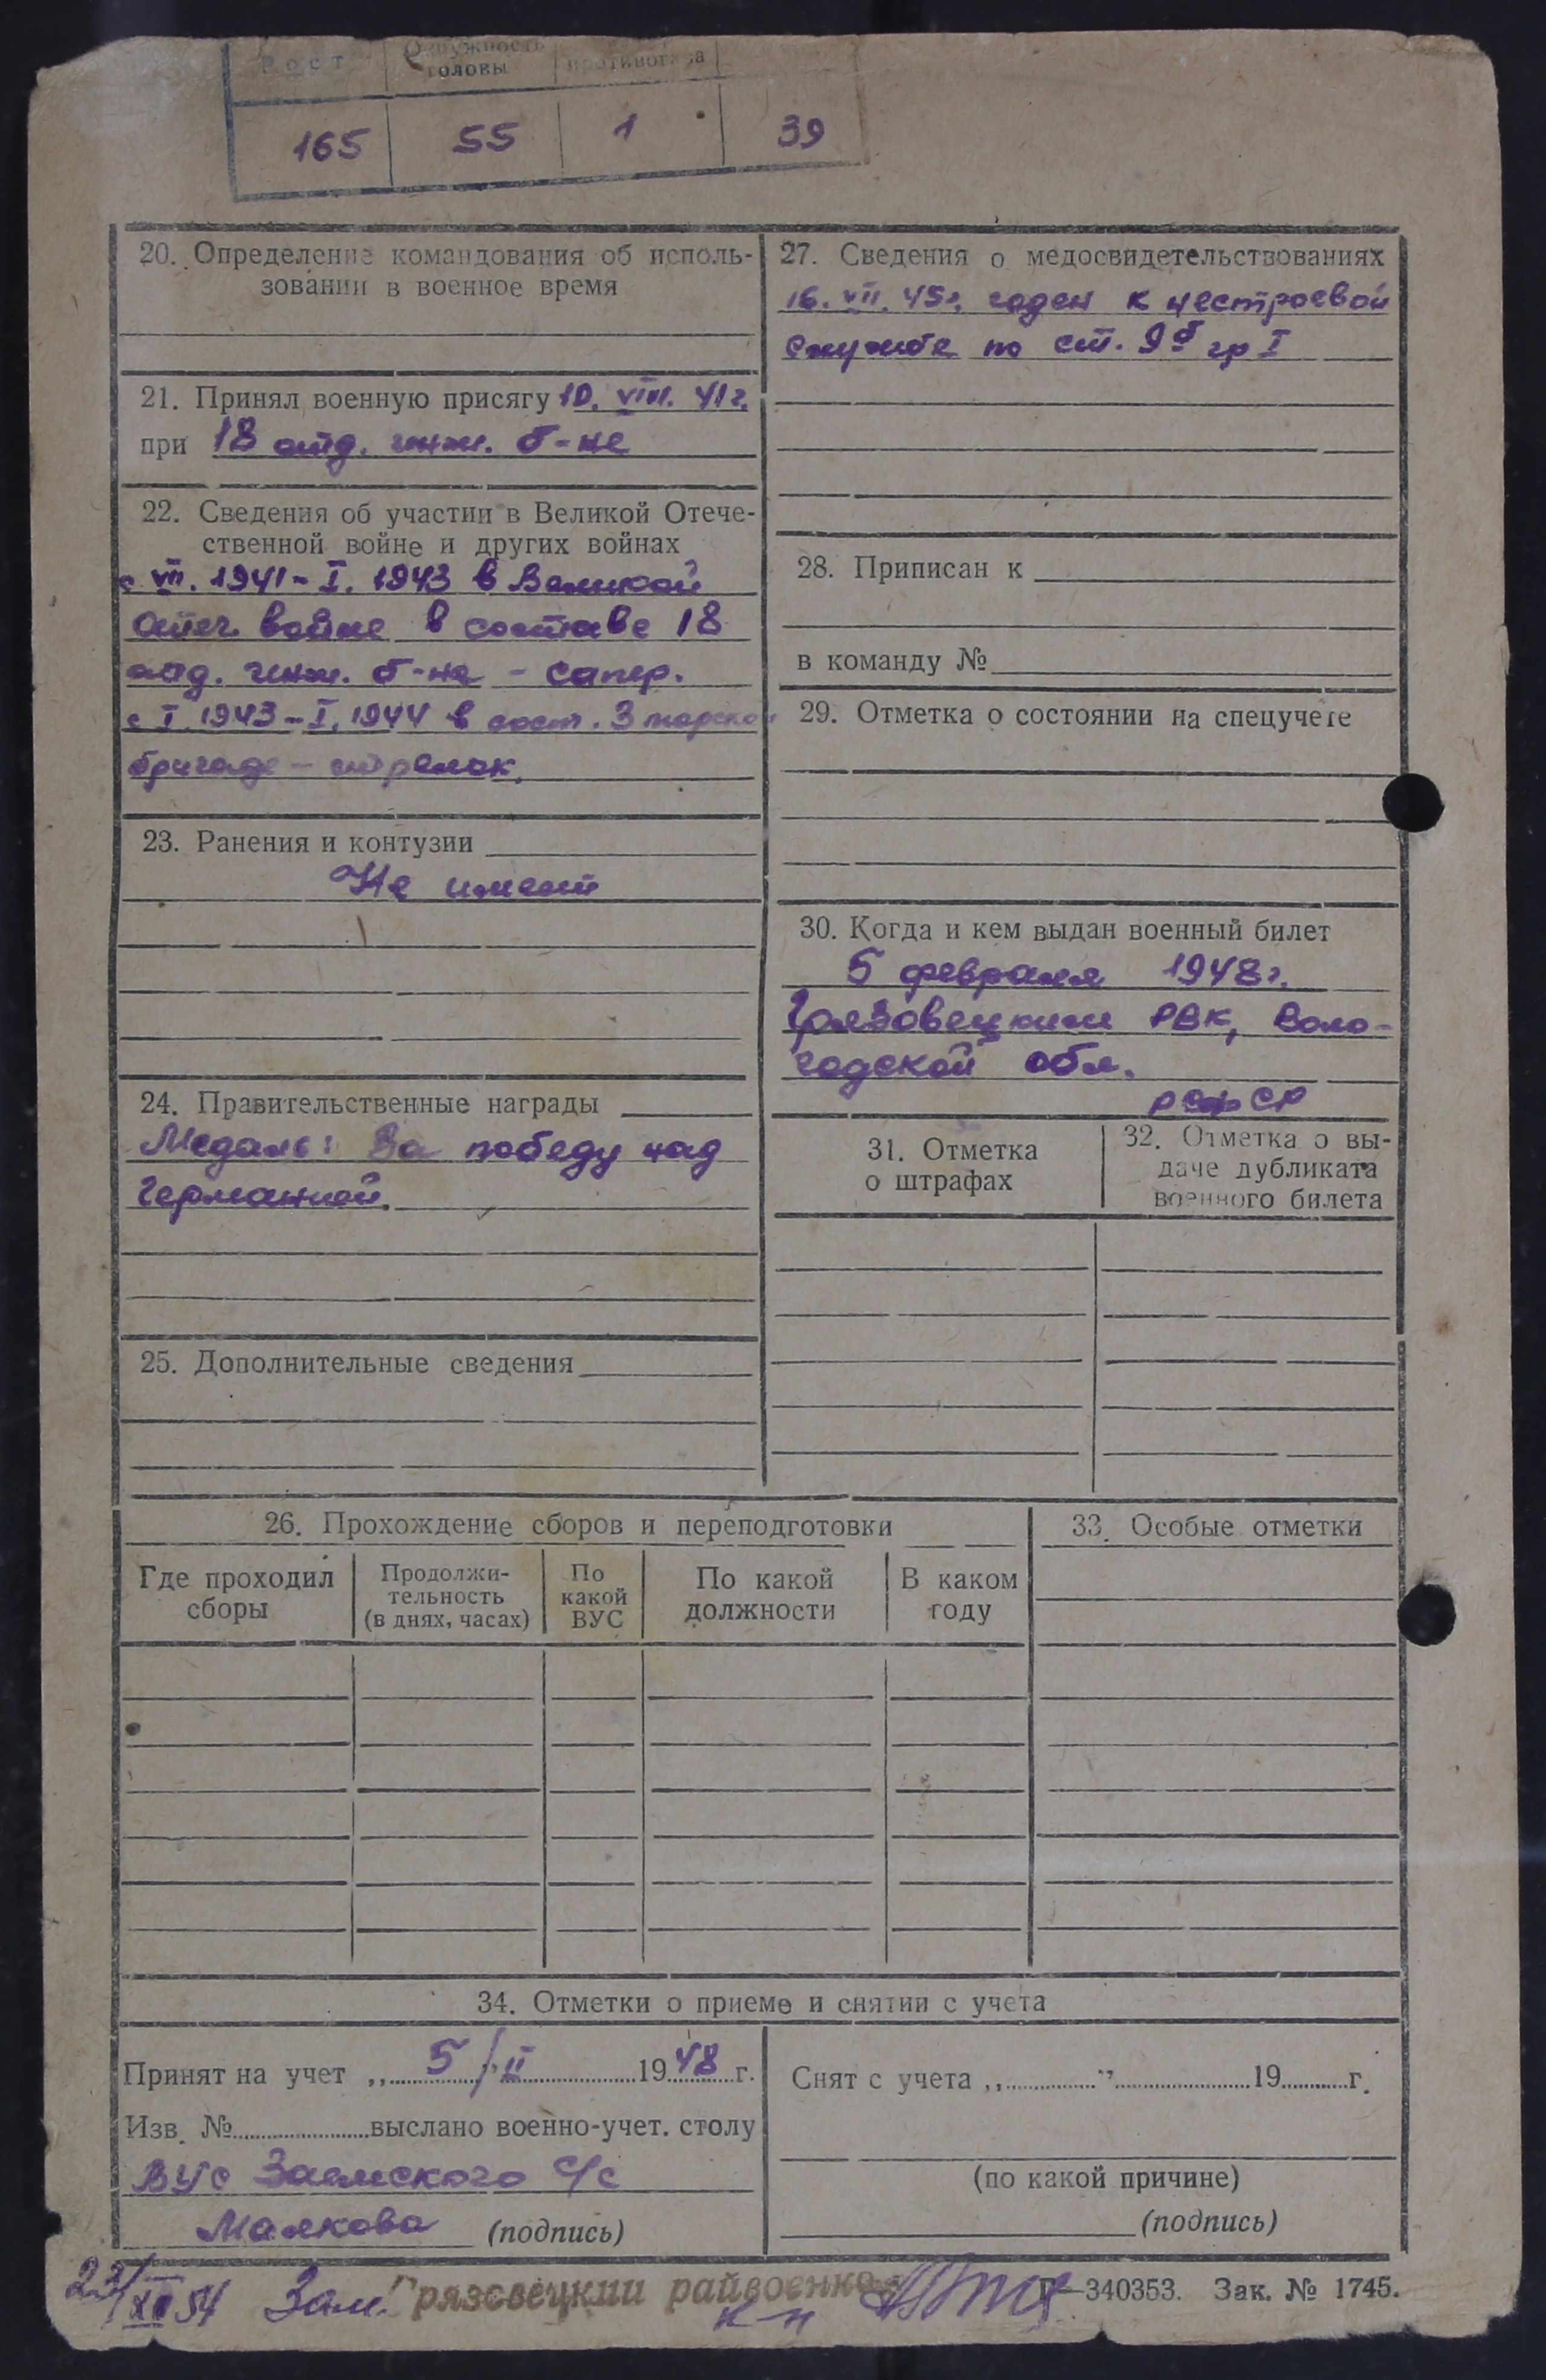 Рост Окружность головы противогаза
165 55 1 39
20. Определение командования об исполь-
зовании в военное время
21. Принял военную присягу 10. VIII. 41 г.
при 18 отд. инж. б-не
22. Сведения об участии в Великой Отече-
ственной войне и других войнах
с VII. 1941 - I. 1943 в Великой
Отеч. войне в составе 18
отд. инж. б-на - сапер.
с I. 1943 - I. 1944 в сост. 3 морской
бригаде - стрелок.
23. Ранения и контузии
Не имеет
24. Правительственные награды
Медаль: За победу над
Германией.
25. Дополнительные сведения
27. Сведения о медосвидетельствованиях
16. VII. 45г. годен к нестроевой
службе по ст. 9б гр I
28. Приписан к
в команду №
29. Отметка о состоянии на спецучете
30. Когда и кем выдан военный билет
5 февраля 1948 г.
Грязовецким РВК, Воло-
годской обл.
РСФСР
31. Отметка
о штрафах
32. Отметка о вы-
даче дубликата
военного билета
26. Прохождение сборов и переподготовки
Где проходил
сборы
Продолжи-
тельность
(в днях, часах)
По
какой
ВУС
По какой
должности
В каком
году
33. Особые отметки
34. Отметки о приеме и снятии с учета
Принят на учет „ 5 / " II 1948 г.
Изв. № выслано военно-учет. столу
ВУС Заемского С/с
Малкова (подпись)
Снят с учета „ " 19 г.
(по какой причине)
(подпись)
23/XII 54 Зам. Грязовецкий райвоенко
к-н
Г—340353. Зак. № 1745.